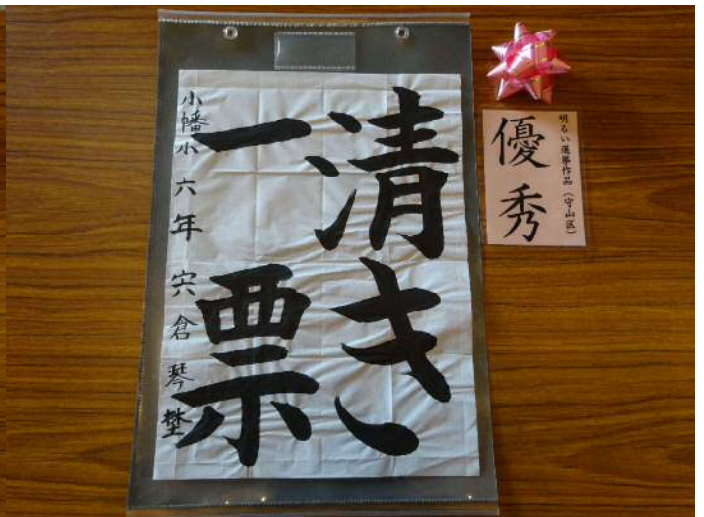 清き
一票
小幡小六年宍倉琴埜
明るい選挙作品(守山区)
優秀